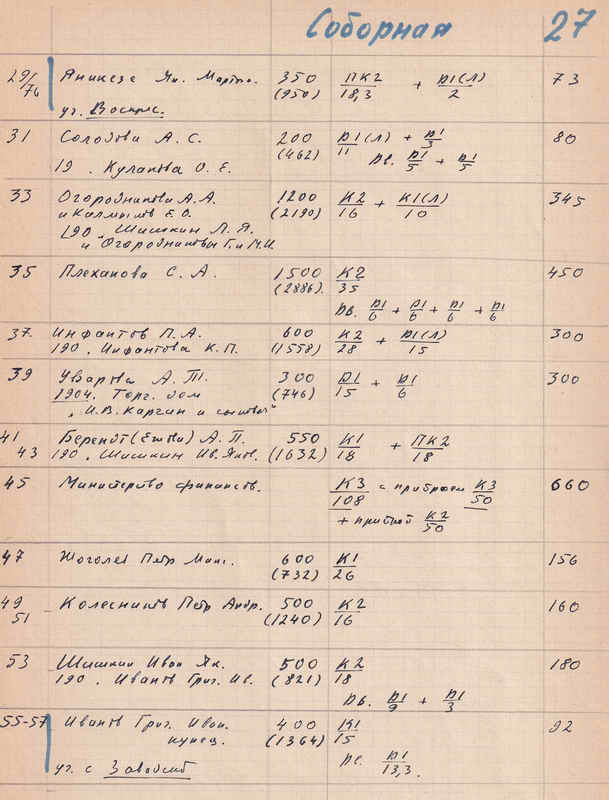 Соборная 27
29/76 Аникеев Як. Март. 350 ПК2/18,3 + Д1(Л)/2 73
(950)
уг. Воскрес.
31 Солодова А. С. 200 Д1(Л)/11 + Д1/3 80
(462) Дв. Д1/5 + Д1/5
19 . Кулакова О. Е.
33 Огородникова А. А. 1200 К2/16 + К1(Л)/10 345
и Калмыков Е. О. (2190)
190 . Шишкин Л. Я.
и Огородниковы Г. и М. И.
35 Плеханова С. А. 1500 К2/35 450
(2886). Дв. Д1/6 + Д1/6 + Д1/6 + Д1/6
37. Инфантов П. А. 600 К2/28 + Д1(Л)/15 300
190 . Инфантова К. П. (1558)
39 Уварова А. П. 300 Д1/15 + Д1/6 300
1904. Торг. дом (746)
„И. В. Каргин и сыновья"
41 Берендт (Ежова) А. П. 550 К1/18 + ПК2/18
43 190 . Шишкин Ив. Яков. (1632)
45 Министерство финансов. К3/108 с прибоем К3/50 660
+ пристрой К2/50
47 Жоголев Петр Мих. 600 К1/26 156
(732)
49 Колесников Петр Андр. 500 К2/16 160
51 (1240)
53 Шишкин Иван Як. 500 К2/18 180
190 . Иванов Григ. Ив. (821)
Дв. Д1/9 + Д1/3
55-57 Иванов Григ. Иван. 400 К1/15 92
купец. (1364)
Дв. Д1/13,3.
уг. с Заводской